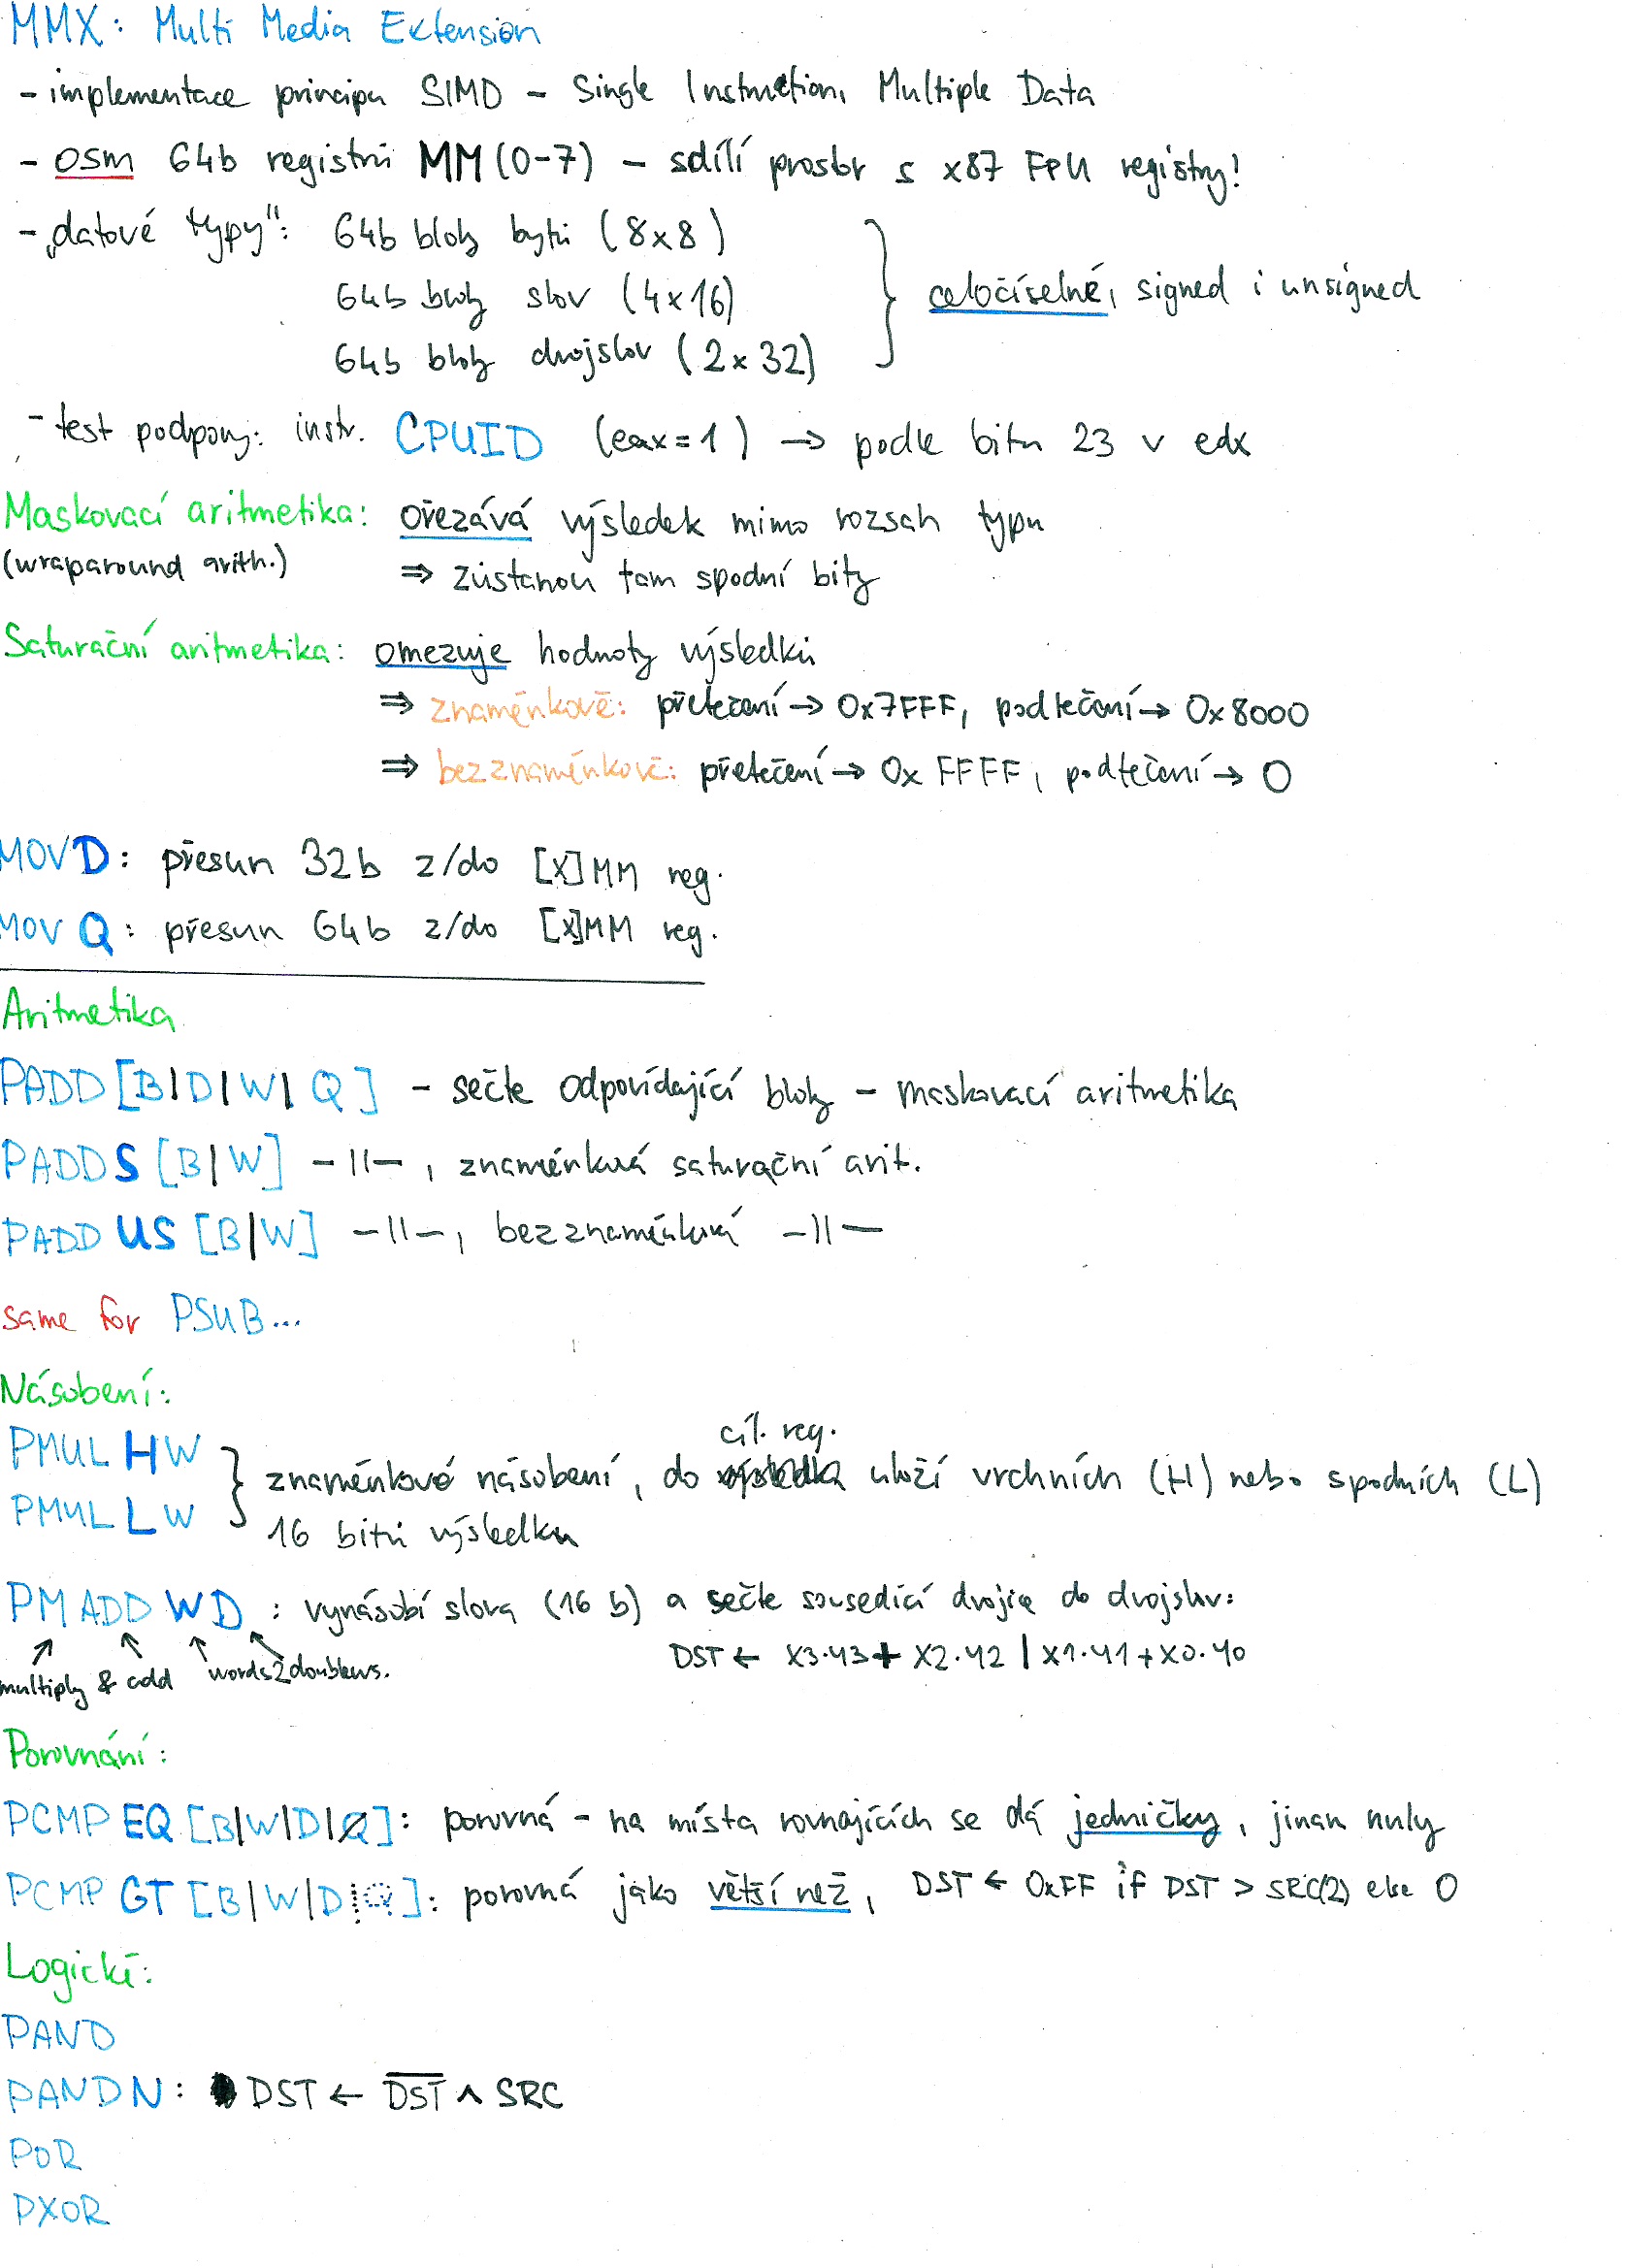 MMX: Multi Media Extension
- implementace principu SIMD - Single Instruction, Multiple Data
- osm 64b registrů MM(0-7) - sdílí prostor s x87 FPU registry!
- „datové typy": 64b bloky bytů (8x8)
64b bloky slov (4x16)
64b bloky dvojslov (2x32)
celočíselné, signed i unsigned
- test podpory: instr. CPUID (eax=1) → podle bitu 23 v edx
Maskovací aritmetika: ořezává výsledek mimo rozsah typu
(wraparound arith.) ⇒ zůstanou tam spodní bity
Saturační aritmetika: omezuje hodnoty výsledků
⇒ znaménkově: přetečení → 0x7FFF, podtečení → 0x8000
⇒ bezznaménkově: přetečení → 0xFFFF, podtečení → 0
MOVD: přesun 32b z/do [X]MM reg.
MOVQ: přesun 64b z/do [X]MM reg.
Aritmetika
PADD[B|D|W|Q] - sečte odpovídající bloky - maskovací aritmetika
PADDS[B|W] -||-, znaménková saturační arit.
PADDUS[B|W] -||-, bezznaménková -||-
same for PSUB...
Násobení:
PMULHW
PMULLW
znaménkové násobení, do cíl. reg. uloží vrchních (H) nebo spodních (L)
16 bitů výsledku
PMADDWD: vynásobí slova (16 b) a sečte sousedící dvojice do dvojslov:
multiply & add words2doublews.
DST ← X3·Y3 + X2·Y2 | X1·Y1 + X0·Y0
Porovnání:
PCMPEQ[B|W|D|Q]: porovná - na místa rovnajících se dá jedničky, jinak nuly
PCMPGT[B|W|D|Q]: porovná jako větší než, DST ← 0xFF if DST > SRC(2) else 0
Logické:
PAND
PANDN: DST ← D̅S̅T̅ ∧ SRC
POR
PXOR